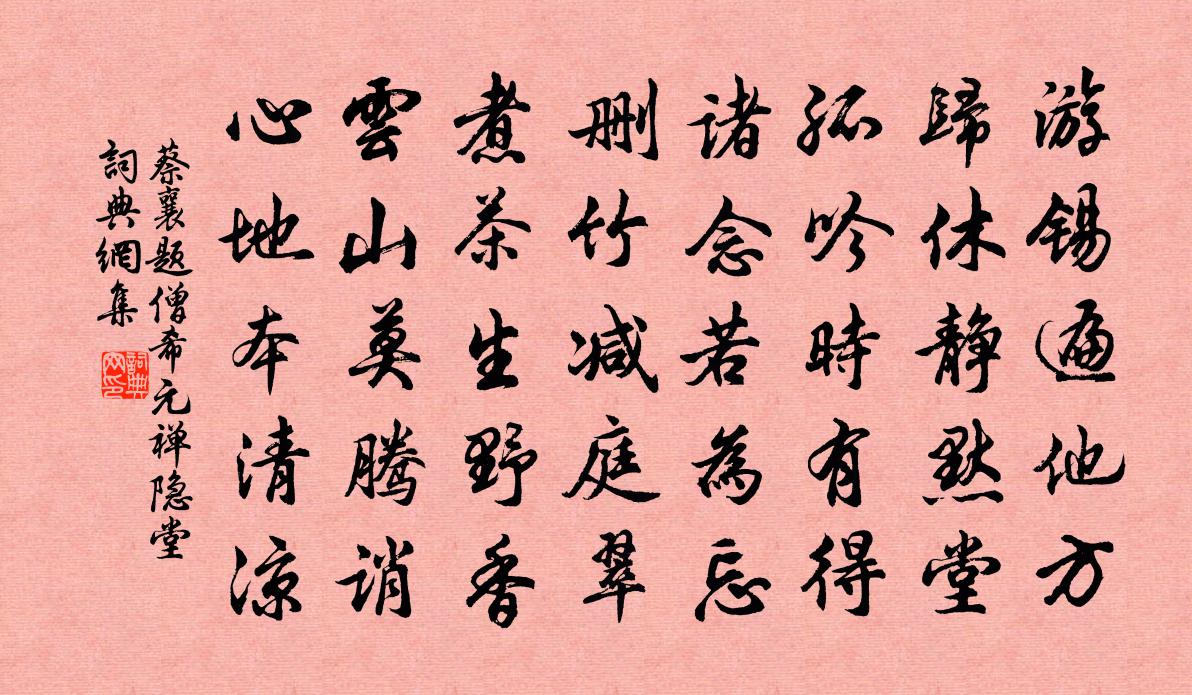 游锡遍他方
歸休静默堂
孤吟時有得
诸念若為忘
删竹减庭翠
煮茶生野香
雲山莫腾诮
心地本清凉
蔡襄题僧希元禅隐堂
詞典網集
詞典網印